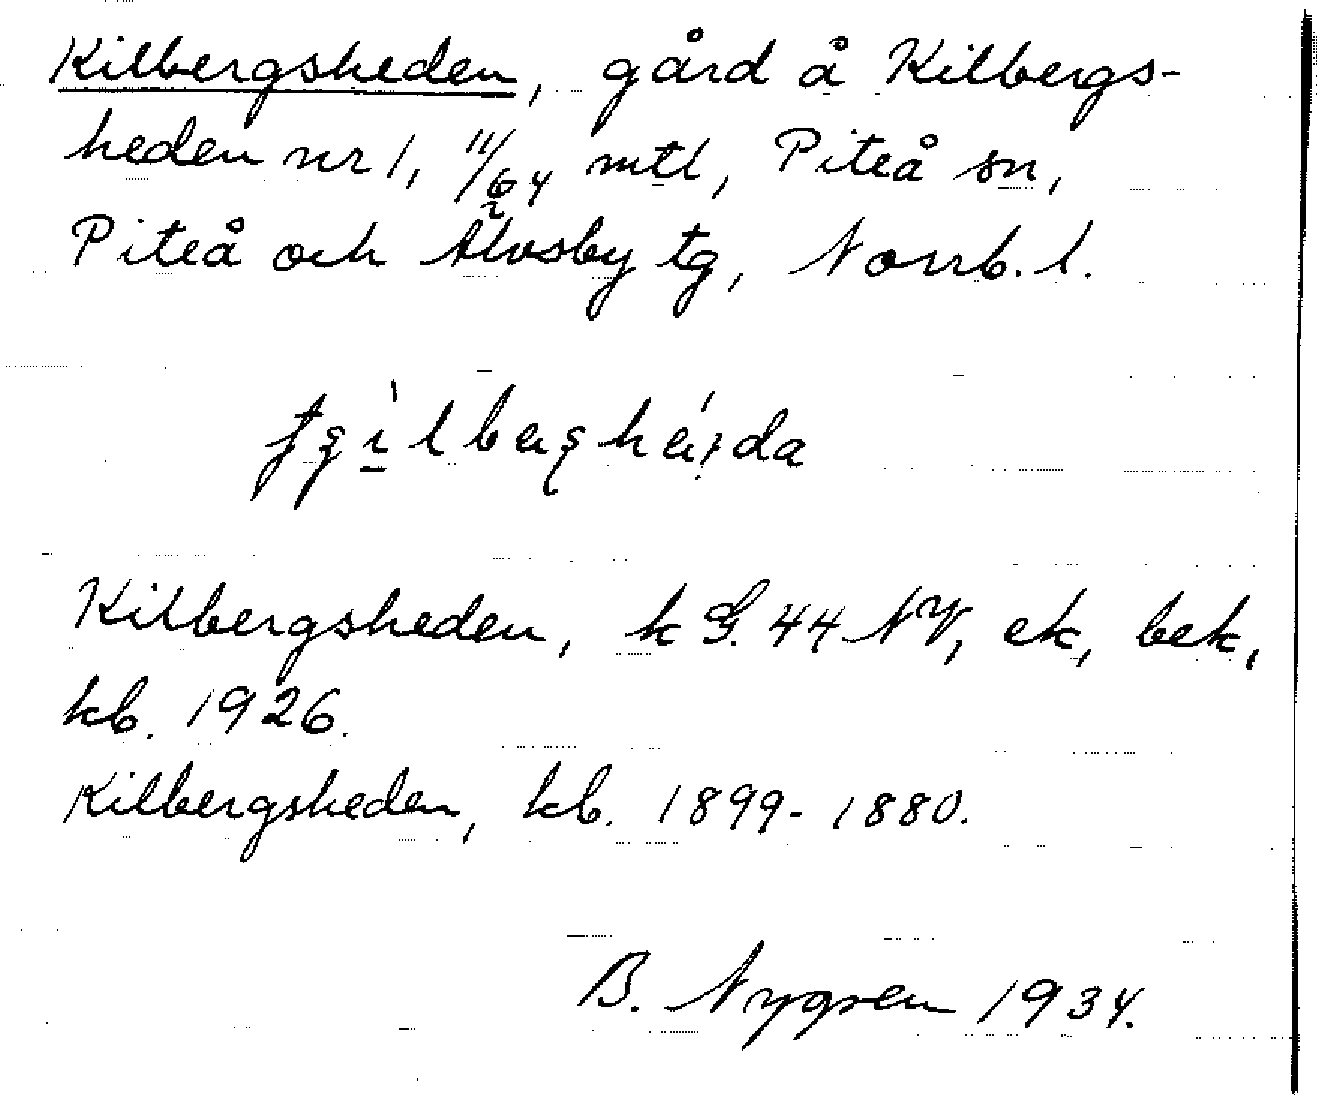 Kilbergsheden, gård å Kilbergs-
heden nr 1, 11/64 mtl, Piteå sn,
Piteå och Älvsby tg, Norrb. l.
Kilbergsheden, k G. 44 NV, ek, bek,
kb. 1926.
Kilbergsheden, kb. 1899-1880.
B. Nygren 1934.